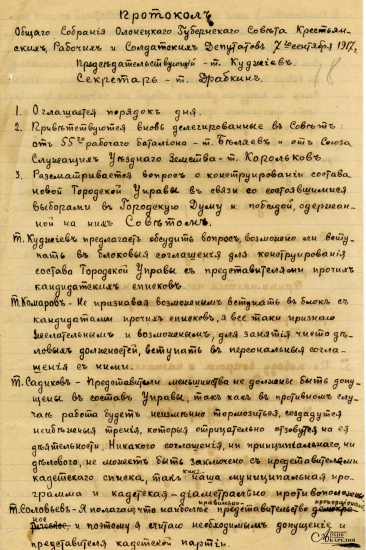 Протоколъ
Общаго Собранія Олонецкаго Губернскаго Совѣта Крестьян-
скихъ, Рабочихъ и Солдатскихъ Депутатовъ 7го сентября 1917 г.
Предсѣдательствующій - т. Куджіевъ.
Секретарь - т. Драбкинъ.
18
1. Оглашается порядокъ дня.
2. Привѣтствуются вновь делегированные в Совѣтъ:
отъ 55го рабочаго баталіона - т. Бѣляевъ и отъ Союза
Служащихъ Уѣзднаго Земства - т. Корольковъ.
3. Разсматривается вопросъ о конструированіи состава
новой Городской Управы въ связи со состоявшимися
выборами въ Городскую Думу и побѣдой, одержан-
ной на нихъ Совѣтомъ.
Т. Куджіевъ предлагаетъ обсудить вопросъ, возможно ли всту-
пать въ блоковыя соглашенія для конструированія
состава Городской Управы съ представителями прочихъ
кандидатскихъ списковъ.
Т. Комаровъ - Не признавая возможнымъ вступать въ блокъ съ
кандидатами прочихъ списковъ, я все таки признаю
желательнымъ и возможнымъ, для занятія чисто дѣ-
ловыхъ должностей, вступать въ персональныя согла-
шенія съ ними.
Т. Садиковъ - Представители меньшинства не должны быть допу-
щены въ составъ Управы, такъ какъ въ противномъ слу-
чаѣ работа будетъ неизмѣнно тормозиться, создадутся
неизбѣжныя тренія, которыя отрицательно отзовутся на ея
дѣятельности. Никакого соглашенія, ни принципіальнаго, ни
дѣлового, не можетъ быть заключено съ представителями
кадетскаго списка, такъ какъ наша муниципальная про-
грамма и кадетская - діаметрально противоположны
Т. Соловьевъ - Я полагаю, что наиболѣе правильно представительство
и поэтому я считаю необходимымъ допущеніе и
представителя кадетской партіи.
Архив Карелии